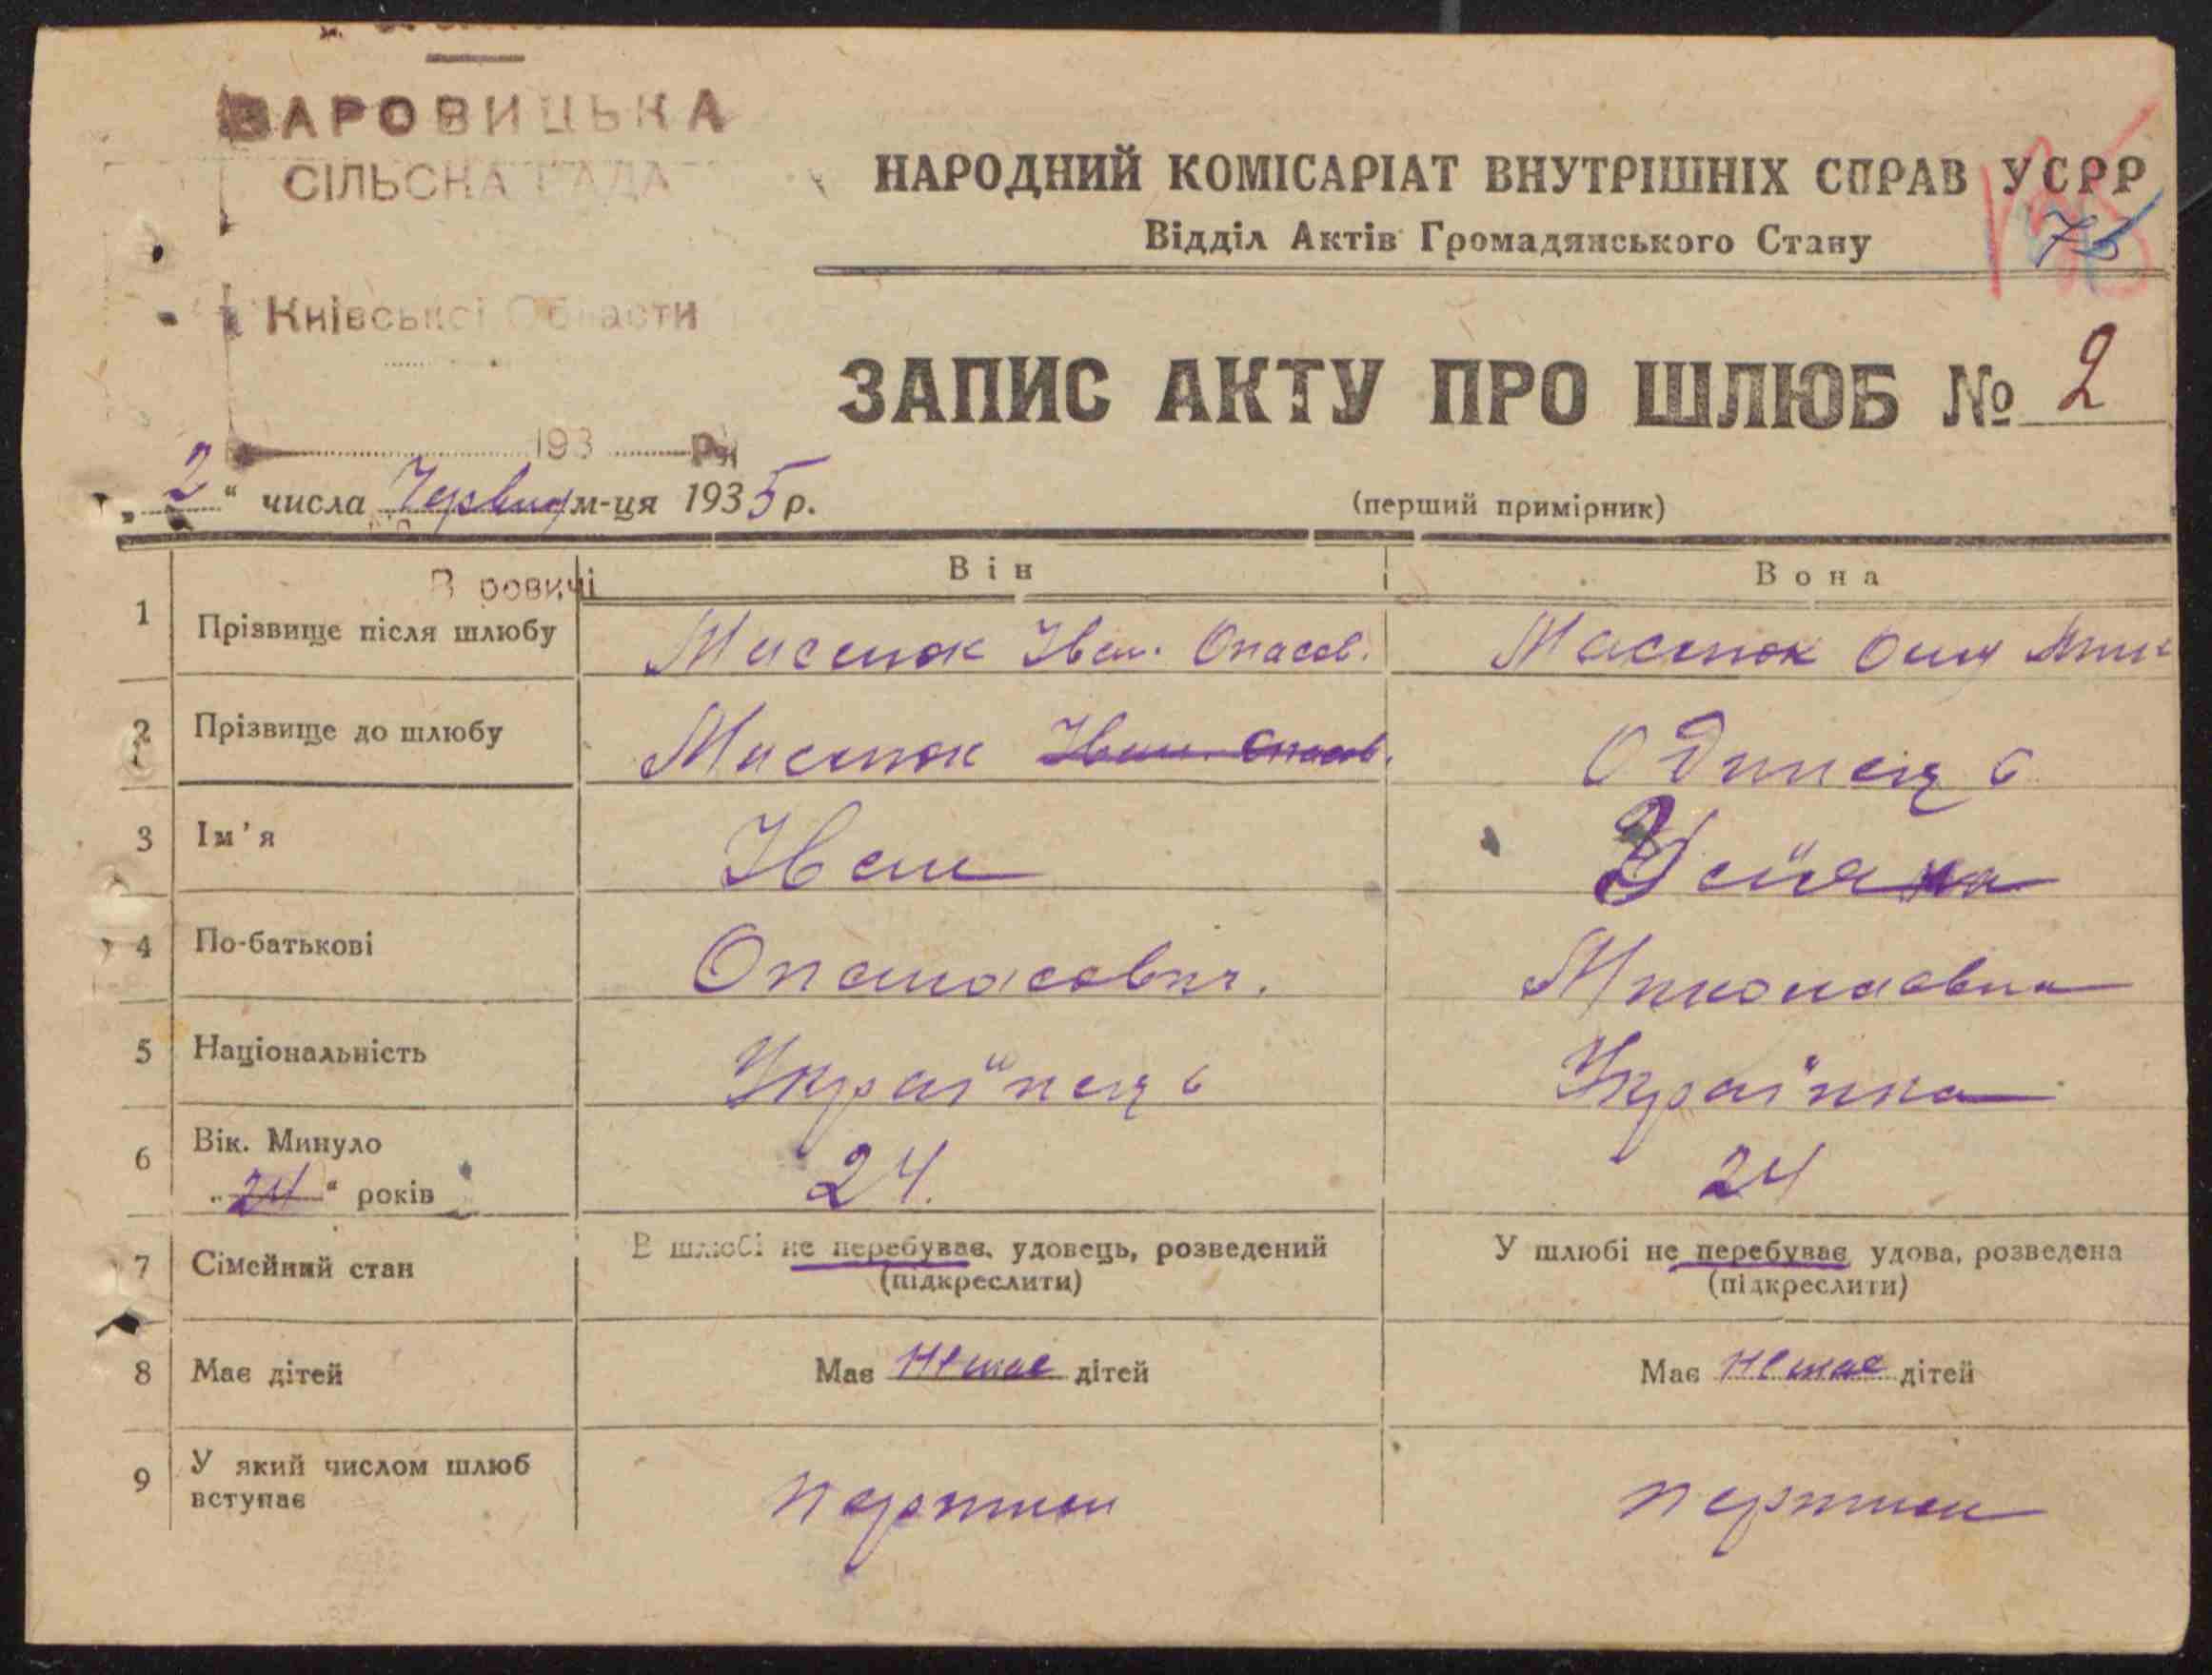 ВАРОВИЦЬКА
СІЛЬСКА РАДА
Київської Области
193 р.
НАРОДНИЙ КОМІСАРІАТ ВНУТРІШНІХ СПРАВ УСРР
Відділ Актів Громадянського Стану
76
ЗАПИС АКТУ ПРО ШЛЮБ № 2
„2“ числа Червня м-ця 1935 р.
(перший примірник)
Він Вона
1 Прізвище після шлюбу Опасов.
2 Прізвище до шлюбу Одинець
3 Ім'я Іван
4 По-батькові Опанасович. Миколаевна
5 Національність Українець Українка
6 Вік. Минуло „24“ років 24. 24
7 Сімейний стан В шлюбі не перебуває, удовець, розведений (підкреслити) У шлюбі не перебуває удова, розведена (підкреслити)
8 Має дітей Має Немає дітей Має Немає дітей
9 У який числом шлюб вступає